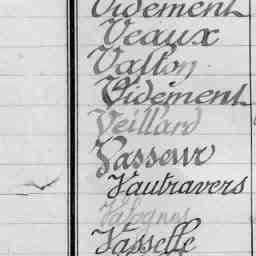 Videment
Veaux
Valton
Videment
Veillard
Vasseur
Vautravers
Valognes
Vasselle